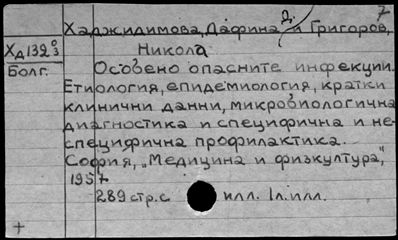 Хаджидимова, Дафина Д. и Григоров,
Никола
Хд132
Болг.
Особено опасните инфекции.
Етиология, епидемиология, кратки
клинични данни, микробиологична
диагностика и специфична и не-
специфична профилактика.
София, „Медицина и физкултура",
1957
289 стр. с илл. 1л. илл.
+